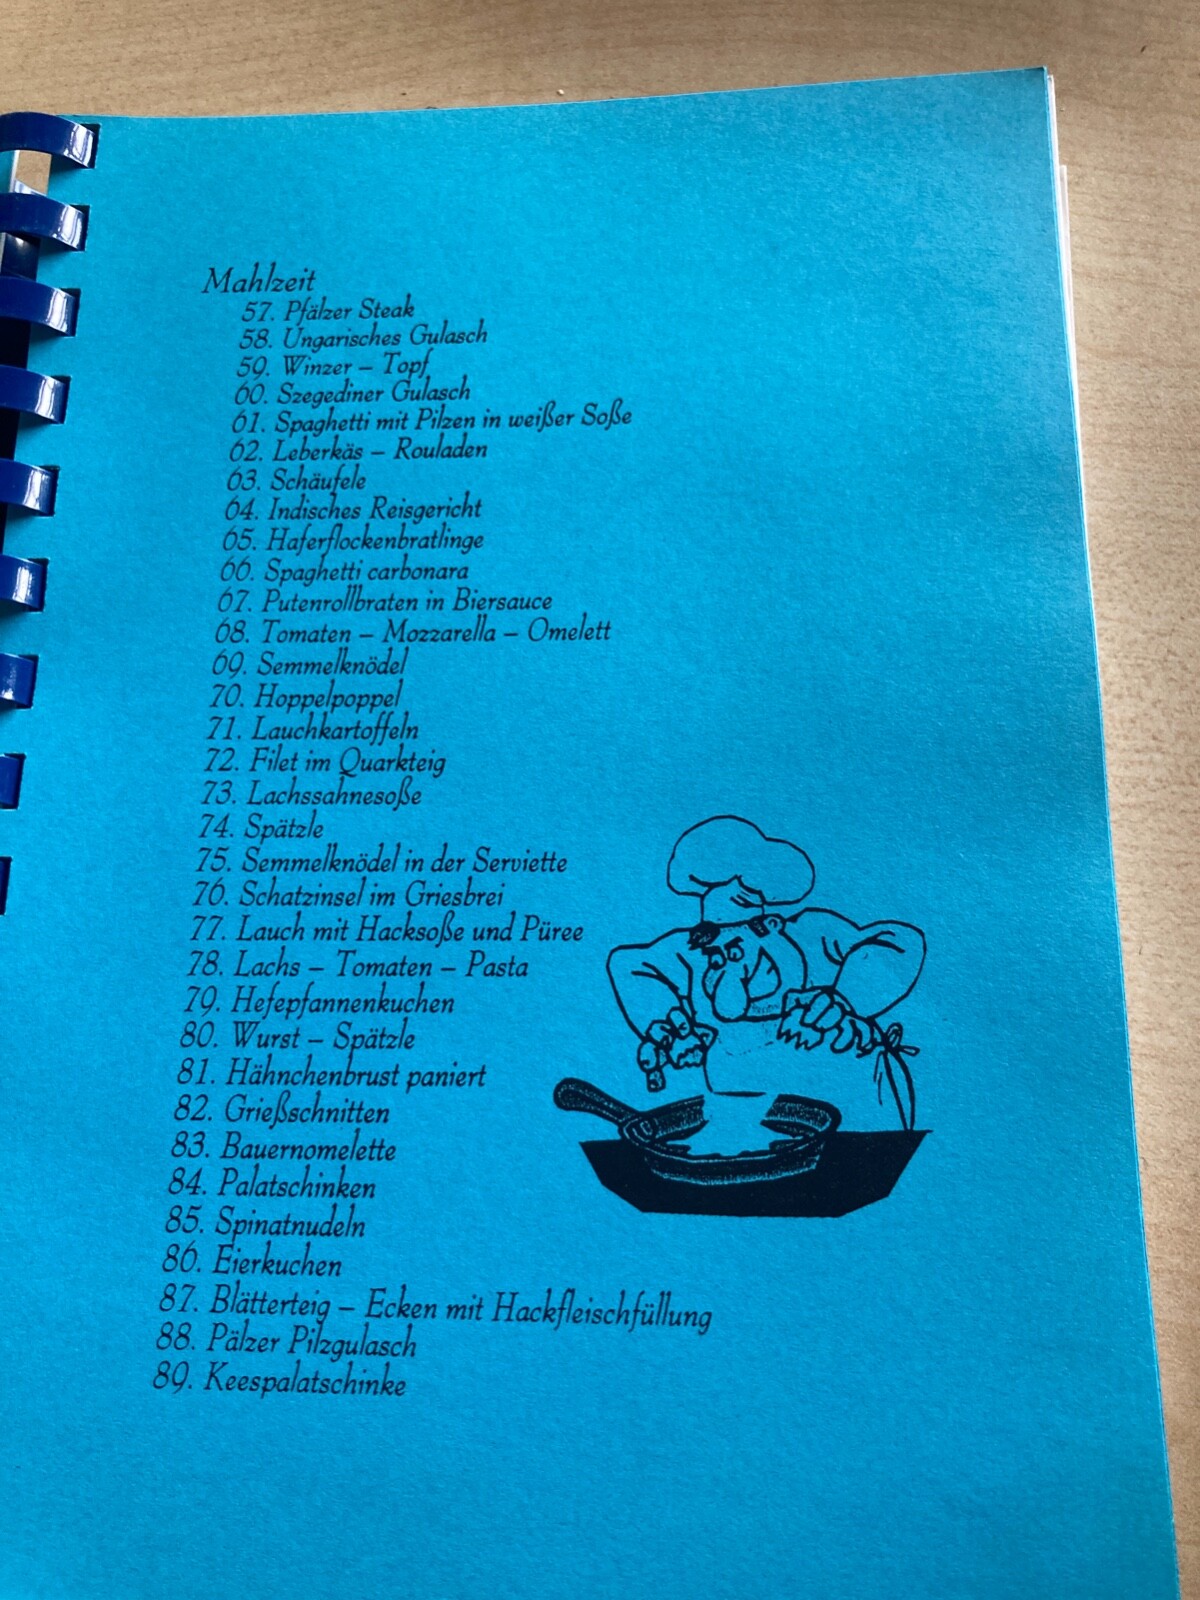 Mahlzeit
57. Pfälzer Steak
58. Ungarisches Gulasch
59. Winzer – Topf
60. Szegediner Gulasch
61. Spaghetti mit Pilzen in weißer Soße
62. Leberkäs – Rouladen
63. Schäufele
64. Indisches Reisgericht
65. Haferflockenbratlinge
66. Spaghetti carbonara
67. Putenrollbraten in Biersauce
68. Tomaten – Mozzarella – Omelett
69. Semmelknödel
70. Hoppelpoppel
71. Lauchkartoffeln
72. Filet im Quarkteig
73. Lachssahnesoße
74. Spätzle
75. Semmelknödel in der Serviette
76. Schatzinsel im Griesbrei
77. Lauch mit Hacksoße und Püree
78. Lachs – Tomaten – Pasta
79. Hefepfannenkuchen
80. Wurst – Spätzle
81. Hähnchenbrust paniert
82. Grießschnitten
83. Bauernomelette
84. Palatschinken
85. Spinatnudeln
86. Eierkuchen
87. Blätterteig – Ecken mit Hackfleischfüllung
88. Pälzer Pilzgulasch
89. Keespalatschinke